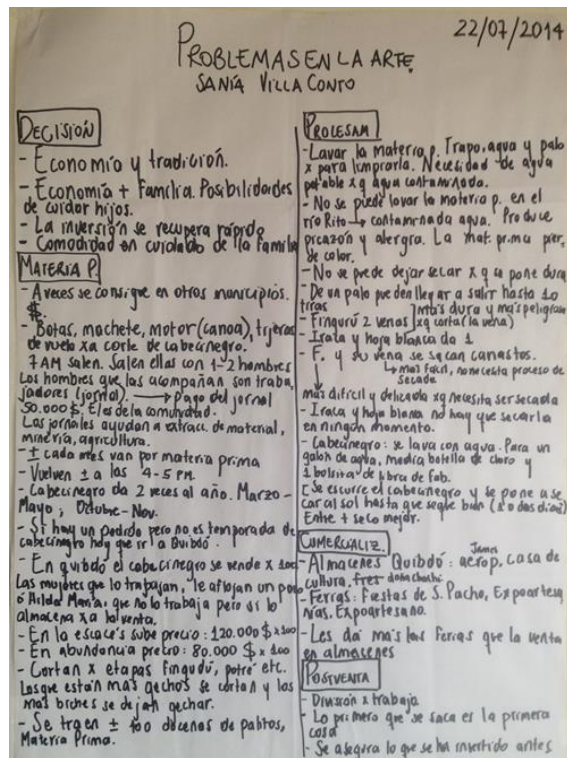 22/07/2014
PROBLEMAS EN LA ARTE
SANÍA VILLA CONTO
DECISIÓN
- Economía y tradición.
- Economía + Familia. Posibilidades
de cuidar hijos.
- La inversión se recupera rápido
- Comodidad en cuidado de la familia
MATERIA P.
- A veces se consigue en otros municipios.
$.
- Botas, machete, motor (canoa), tijeras
de vuelo xa corte de cabecinegro.
7 AM salen. Salen ellas con 1-2 hombres
Los hombres que las acompañan son traba
jadores (jornal). → Pago del jornal
50.000$. El es de la comunidad.
Los jornales ayudan a extracc. de material,
minería, agricultura.
- ± cada mes van por materia prima
- Vuelven ± a las 4-5 PM.
- Cabecinegro da 2 veces al año. Marzo -
Mayo ; Octubre - Nov.
- Si hay un pedido pero no es temporada de
cabecinegro hay que ir a Quibdó.
- En quibdó el cabecinegro se vende x 100
Las mujeres que lo trabajan, le aflojan un poco
ó Hilda María, que no lo trabaja pero si lo
almacena xa la venta.
- En la escaces sube precio : 120.000$ x 100
- En abundancia precio : 80.000 $ x 100
- Cortan x etapas fingudú, potré etc.
Los que están mas gechos se cortan y los
mas biches se dejan gechar.
- Se traen ± 100 docenas de palitos,
Materia Prima.
PROCESAM
- Lavar la materia p. Trapo, agua y palo
x para limpiarla. Necesidad de agua
potable xq agua contaminada.
- No se puede lavar la materia p. en el
río Rito → contaminada agua. Produce
picazón y alergia. La mat. prima pier.
de color.
- No se puede dejar secar xq se pone dura
- De un palo pueden llegar a salir hasta 10
tiras
- Fingurú 2 venas ] Más dura y mas peligrosa
xq corta (la vena)
- Iraca y hoja blanca da 1
- F. y su vena se sacan canastos.
↳ mas facil, no necesita proceso de
secada
mas dificil y delicada xq necesita ser secada
- Iraca y hoja blanca no hay que secarla
en ningún momento.
- Cabecinegro : se lava con agua. Para un
galon de agua, media botella de cloro y
1 bolsita de fibra de Fab.
[ Se escurre el cabecinegro y se pone a se
car al sol hasta que seque bien (1 o dos días)
Entre + seco mejor.
COMERCIALIZ.
- Almacenes Quibdó : aerop. casa de
cultura,
- Ferias : Fiestas de S. Pacho, Expoartesa
nías. Expoartesano.
- Les da mas las ferias que la venta
en almacenes
POSTVENTA
- División x trabajo
- Lo primero que se saca es la primera
cosa
- Se asegura lo que se ha invertido antes